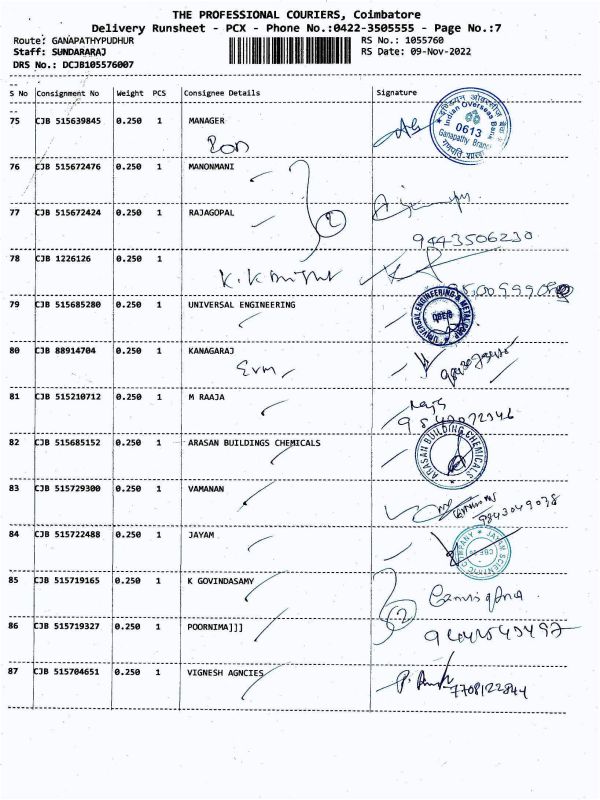 THE PROFESSIONAL COURIERS, Coimbatore
Delivery Runsheet - PCX - Phone No.:0422-3505555 - Page No.:7
Route: GANAPATHYPUDHUR RS No.: 1055760
Staff: SUNDARARAJ RS Date: 09-Nov-2022
DRS No.: DCJB105576007
S No Consignment No Weight PCS Consignee Details Signature
75 CJB 515639845 0.250 1 MANAGER
इण्डियन ओवरसीज बैंक
Indian Overseas Bank
0613
Ganapathy Branch
गणपति शाखा
76 CJB 515672476 0.250 1 MANONMANI
77 CJB 515672424 0.250 1 RAJAGOPAL
2
9443506230
78 CJB 1226126 0.250 1
79 CJB 515685280 0.250 1 UNIVERSAL ENGINEERING
UNIVERSAL ENGINEERING & METALCORP
80 CJB 88914704 0.250 1 KANAGARAJ
81 CJB 515210712 0.250 1 M RAAJA
82 CJB 515685152 0.250 1 ARASAN BUILDINGS CHEMICALS
ARASAN BUILDING CHEMICALS
83 CJB 515729300 0.250 1 VAMANAN
9843049038
84 CJB 515722488 0.250 1 JAYAM
JAYAM SCIENTIFIC COMPANY
85 CJB 515719165 0.250 1 K GOVINDASAMY
2
86 CJB 515719327 0.250 1 POORNIMA]]]
87 CJB 515704651 0.250 1 VIGNESH AGNCIES
7708122844